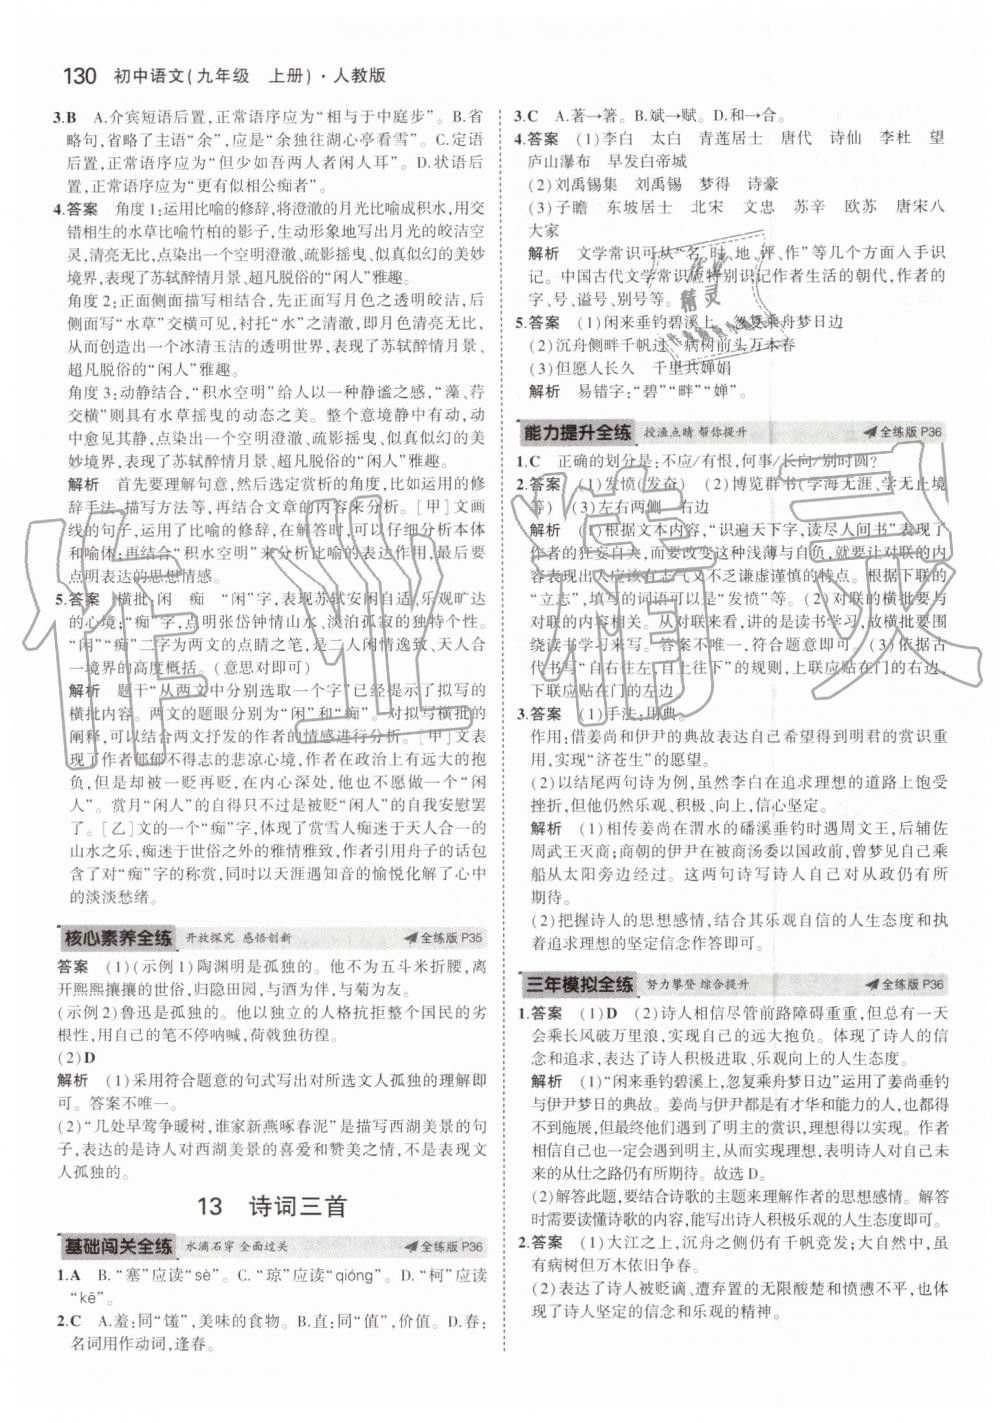 130 初中语文(九年级 上册)·人教版
3.B A.介宾短语后置,正常语序应为“相与于中庭步”。B.省
略句,省略了主语“余”,应是“余独往湖心亭看雪”。C.定语
后置,正常语序应为“但少如吾两人者闲人耳”。D.状语后
置,正常语序应为“更有似相公痴者”。
4.答案 角度1:运用比喻的修辞,将澄澈的月光比喻成积水,用交
错相生的水草比喻竹柏的影子,生动形象地写出月光的皎洁空
灵,清丽无比,点染出一个空明澄澈、疏影摇曳、似真似幻的美妙
境界,表现了苏轼醉情月景、超凡脱俗的“闲人”雅趣。
角度2:正面侧面描写相结合,先正面写月色之透明皎洁,后
侧面写“水草”交横可见,衬托“水”之清澈,即月色清亮无比,
从而创造出一个冰清玉洁的透明世界,表现了苏轼醉情月景、
超凡脱俗的“闲人”雅趣。
角度3:动静结合,“积水空明”给人以一种静谧之感,“藻、荇
交横”则具有水草摇曳的动态之美。整个意境静中有动,动
中愈见其静,点染出一个空明澄澈、疏影摇曳、似真似幻的美
妙境界,表现了苏轼醉情月景、超凡脱俗的“闲人”雅趣。
解析 首先要理解句意,然后选定赏析的角度,如从句子的修
辞手法、描写方法等,再结合文章的内容来分析。[甲]文画
线的句子,运用了比喻的修辞,在解答时,可以仔细分析本体
和喻体;再结合“积水空明”来分析比喻的表达作用,最后要
点明表达的思想情感。
5.答案 横批:闲 痴 “闲”字,表现苏轼安闲自适、乐观旷达
的心境;“痴”字,点明张岱钟情山水、淡泊孤寂的独特个性。
“闲”“痴”二字为两文的点睛之笔,是二人闲情逸致、天人合
一境界的高度概括。(意思对即可)
解析 题干“从两文中分别选取一个字”已经提示了拟写的
横批内容。两文的题眼分别为“闲”和“痴”。对拟写横批的
阐释,可以结合两文抒发的作者的情感进行分析。[甲]文表
现了作者郁郁不得志的悲凉心境。作者在政治上有远大的抱
负,但是却被一贬再贬,在内心深处,他可不愿做一个“闲
人”。赏月“闲人”的自得只不过是被贬“闲人”的自我安慰罢
了。[乙]文的一个“痴”字,体现了赏雪人痴迷于天人合一的
山水之乐,痴迷于世俗之外的雅情雅致,作者引用舟子的话包
含了对“痴”字的称赏,同时以天涯遇知音的愉悦化解了心中
的淡淡愁绪。
核心素养全练 开放探究 感悟创新 全练版P35
答案 (1)(示例1)陶渊明是孤独的。他不为五斗米折腰,离
开熙熙攘攘的世俗,归隐田园,与清风明月为伴。
(示例2)鲁迅是孤独的。他以独立的人格抗拒整个国民的劣
根性,用自己的笔不停呐喊,荷戟独彷徨。
(2)D
解析 (1)采用符合题意的句式写出对所选文人孤独的理解即
可。答案不唯一。
(2)“几处早莺争暖树,谁家新燕啄春泥”是描写西湖美景的句
子,表达了诗人对西湖美景的喜爱和赞美之情,不是表现文
人孤独的。
13 诗词三首
基础闯关全练 水滴石穿 全面过关 全练版P36
1.A B.“塞”应读“sè”。C.“琼”应读“qióng”。D.“柯”应读
“kē”。
2.C A.羞:同“馐”,美味的食物。B.直:同“值”,价值。D.春:
名词用作动词,逢春。
3.C A.著→箸。B.斌→赋。D.和→合。
4.答案 (1)李白 太白 青莲居士 唐代 诗仙 李杜 望
庐山瀑布 早发白帝城
(2)刘禹锡集 刘禹锡 梦得 诗豪
(3)子瞻 东坡居士 北宋 文忠 苏辛 欧苏 唐宋八
大家
解析 文学常识可从“名、时、地、评、作”等几个方面入手识
记。中国古代文学常识应特别识记作者生活的朝代,作者的
字、号、谥号、别号等。
5.答案 (1)闲来垂钓碧溪上 忽复乘舟梦日边
(2)沉舟侧畔千帆过 病树前头万木春
(3)但愿人长久 千里共婵娟
解析 易错字:“碧”“畔”“婵”。
能力提升全练 授渔点睛 帮你提升 全练版P36
1.C 正确的划分是:不应/有恨,何事/长向/别时圆?
2.答案 (1)发愤(发奋) (2)博览群书(学海无涯、学无止境
等) (3)左右两侧 右边
解析 (1)根据文本内容,“识遍天下字,读尽人间书”表现了
作者的狂妄自大,而要改变这种浅薄与自负,就要让对联的内
容表现出人应该有志气又不乏谦虚谨慎的特点。根据下联的
“立志”,填写的词语可以是“发愤”等。(2)对联的横批要与对
联的内容相关。从对联来看,讲的是读书学习,故横批要围
绕读书学习来写。答案不唯一,符合题意即可。(3)根据古
代书写“自右往左,自上往下”的规则,上联应贴在门的右边,
下联应贴在门的左边。
3.答案 (1)手法:用典。
作用:借姜尚和伊尹的典故表达自己希望得到明君的赏识重
用,实现“济苍生”的愿望。
(2)以结尾两句诗为例,虽然李白在追求理想的道路上饱受
挫折,但他仍然乐观、积极、向上,信心坚定。
解析 (1)相传姜尚在渭水的磻溪垂钓时遇周文王,后辅佐
周武王灭商;商朝的伊尹在被商汤委以国政前,曾梦见自己乘
船从太阳旁边经过。这两句诗写诗人自己对从政仍有所
期待。
(2)把握诗人的思想感情,结合其乐观自信的人生态度和执
着追求理想的坚定信念作答即可。
三年模拟全练 努力攀登 综合提升 全练版P36
1.答案 (1)D (2)诗人相信尽管前路障碍重重,但总有一天
会乘长风破万里浪,实现自己的远大抱负。体现了诗人的信
念和追求,表达了诗人积极进取、乐观向上的人生态度。
解析 (1)“闲来垂钓碧溪上,忽复乘舟梦日边”运用了姜尚垂钓
与伊尹梦日的典故。姜尚与伊尹都是有才华和能力的人,也都得
不到施展,但最终他们遇到了明主的赏识,理想得以实现。作者
相信自己也一定会遇到明主,从而施展才华,表现了诗人对自己未
来的从仕之路仍有所期待。故选D。
(2)解答此题,要结合诗歌的主题来理解作者的思想感情。解答
时需要读懂诗歌的内容,体现诗人积极乐观的人生态度即可。
2.答案 (1)大江之上,沉舟之侧仍有千帆竞发;大自然中,枯树
病树之前依旧万木回春,一派生机勃勃的景象。
(2)表现了诗人被贬谪、遭弃置的无限酸楚和愤懑不平,也体
现了诗人坚定的信念和乐观的精神。
作业精灵